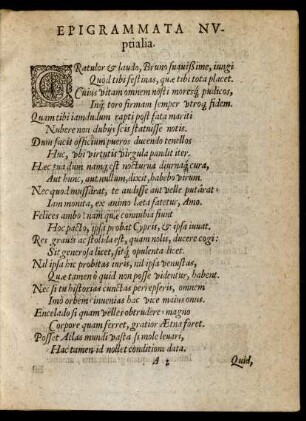 EPIGRAMMATA NV-
ptialia.
GRatulor & laudo, Bruno suauißime, iungi
Quòd tibi festinas, quæ tibi tota placet.
Cuius vitam omnem nosti moresq́ pudicos,
Inq́ toro firmam semper vtroq́ fidem.
Quam tibi iamdudum rapti post fata mariti
Nubere non dubijs scis statuisse notis.
Dum facit officium pueros ducendo tenellos
Huc, vbi virtutis virgula pandit iter.
Hæc sua dum namq́ est nocturna diurnaq́ cura,
Aut hunc, aut nullum, dixit, habebo virum.
Nec quod mussârat, te audisse aut velle putârat:
Iam monita, ex animo læta fatetur, Amo.
Felices ambo: nam quæ connubia siunt
Hoc pacto, ipsa probat Cypris, & ipsa iuuat.
Res grauis ac stolida est, quam nolis, ducere cogi:
Sit generosa licet, sitq́ opulenta licet.
Nil ipsa hic probitas iuris, nil ipsa venustas,
Quæ tamen ô quid non posse videntur, habent.
Nec si tu historias cunctas perrepseris, omnem
Imò orbem: inuenias hac vice maius onus.
Encelado si quam vellet obtrudere magno
Corpore quam ferret, gratior Ætna foret.
Posset Atlas mundi vasta si mole leuari,
Hac tamen id nollet conditione data.
A 2 Quid,